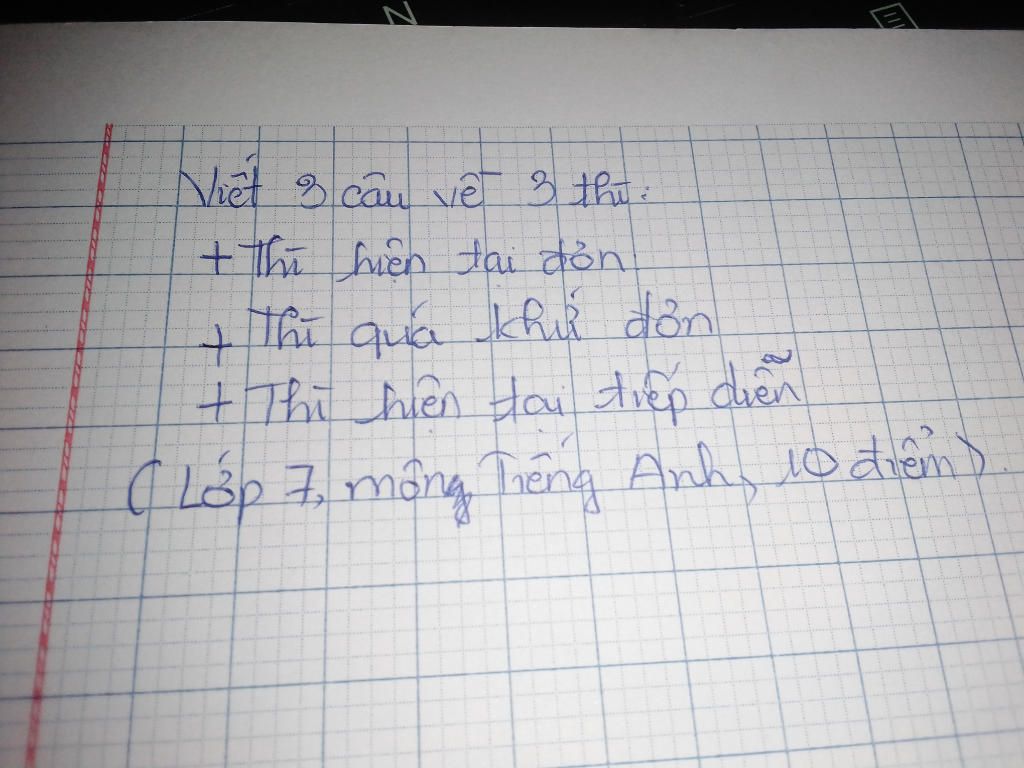 Viết 3 câu về 3 thì:
+ Thì hiện tại đơn
+ Thì quá khứ đơn
+ Thì hiện tại tiếp diễn
(Lớp 7, mông Tiếng Anh, 10 điểm).